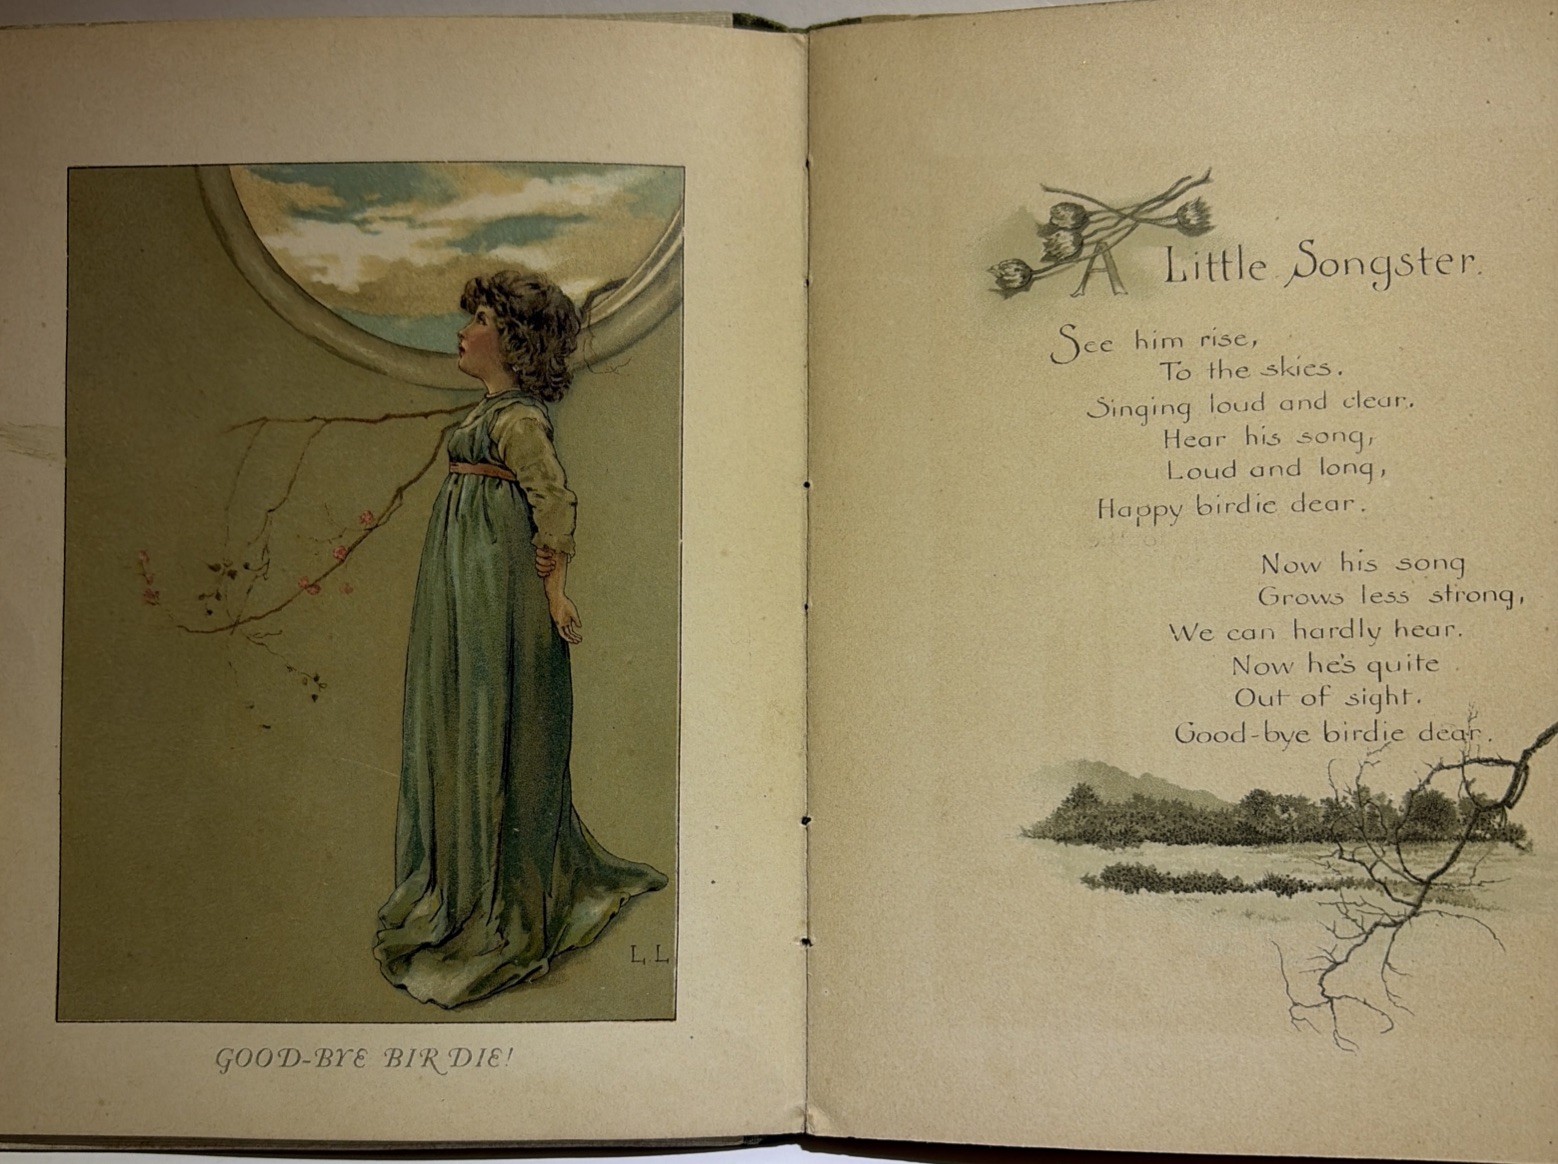 L. L
GOOD-BYE BIRDIE!
A Little Songster.
See him rise,
To the skies.
Singing loud and clear.
Hear his song,
Loud and long,
Happy birdie dear.
Now his song
Grows less strong,
We can hardly hear.
Now he's quite
Out of sight.
Good-bye birdie dear.